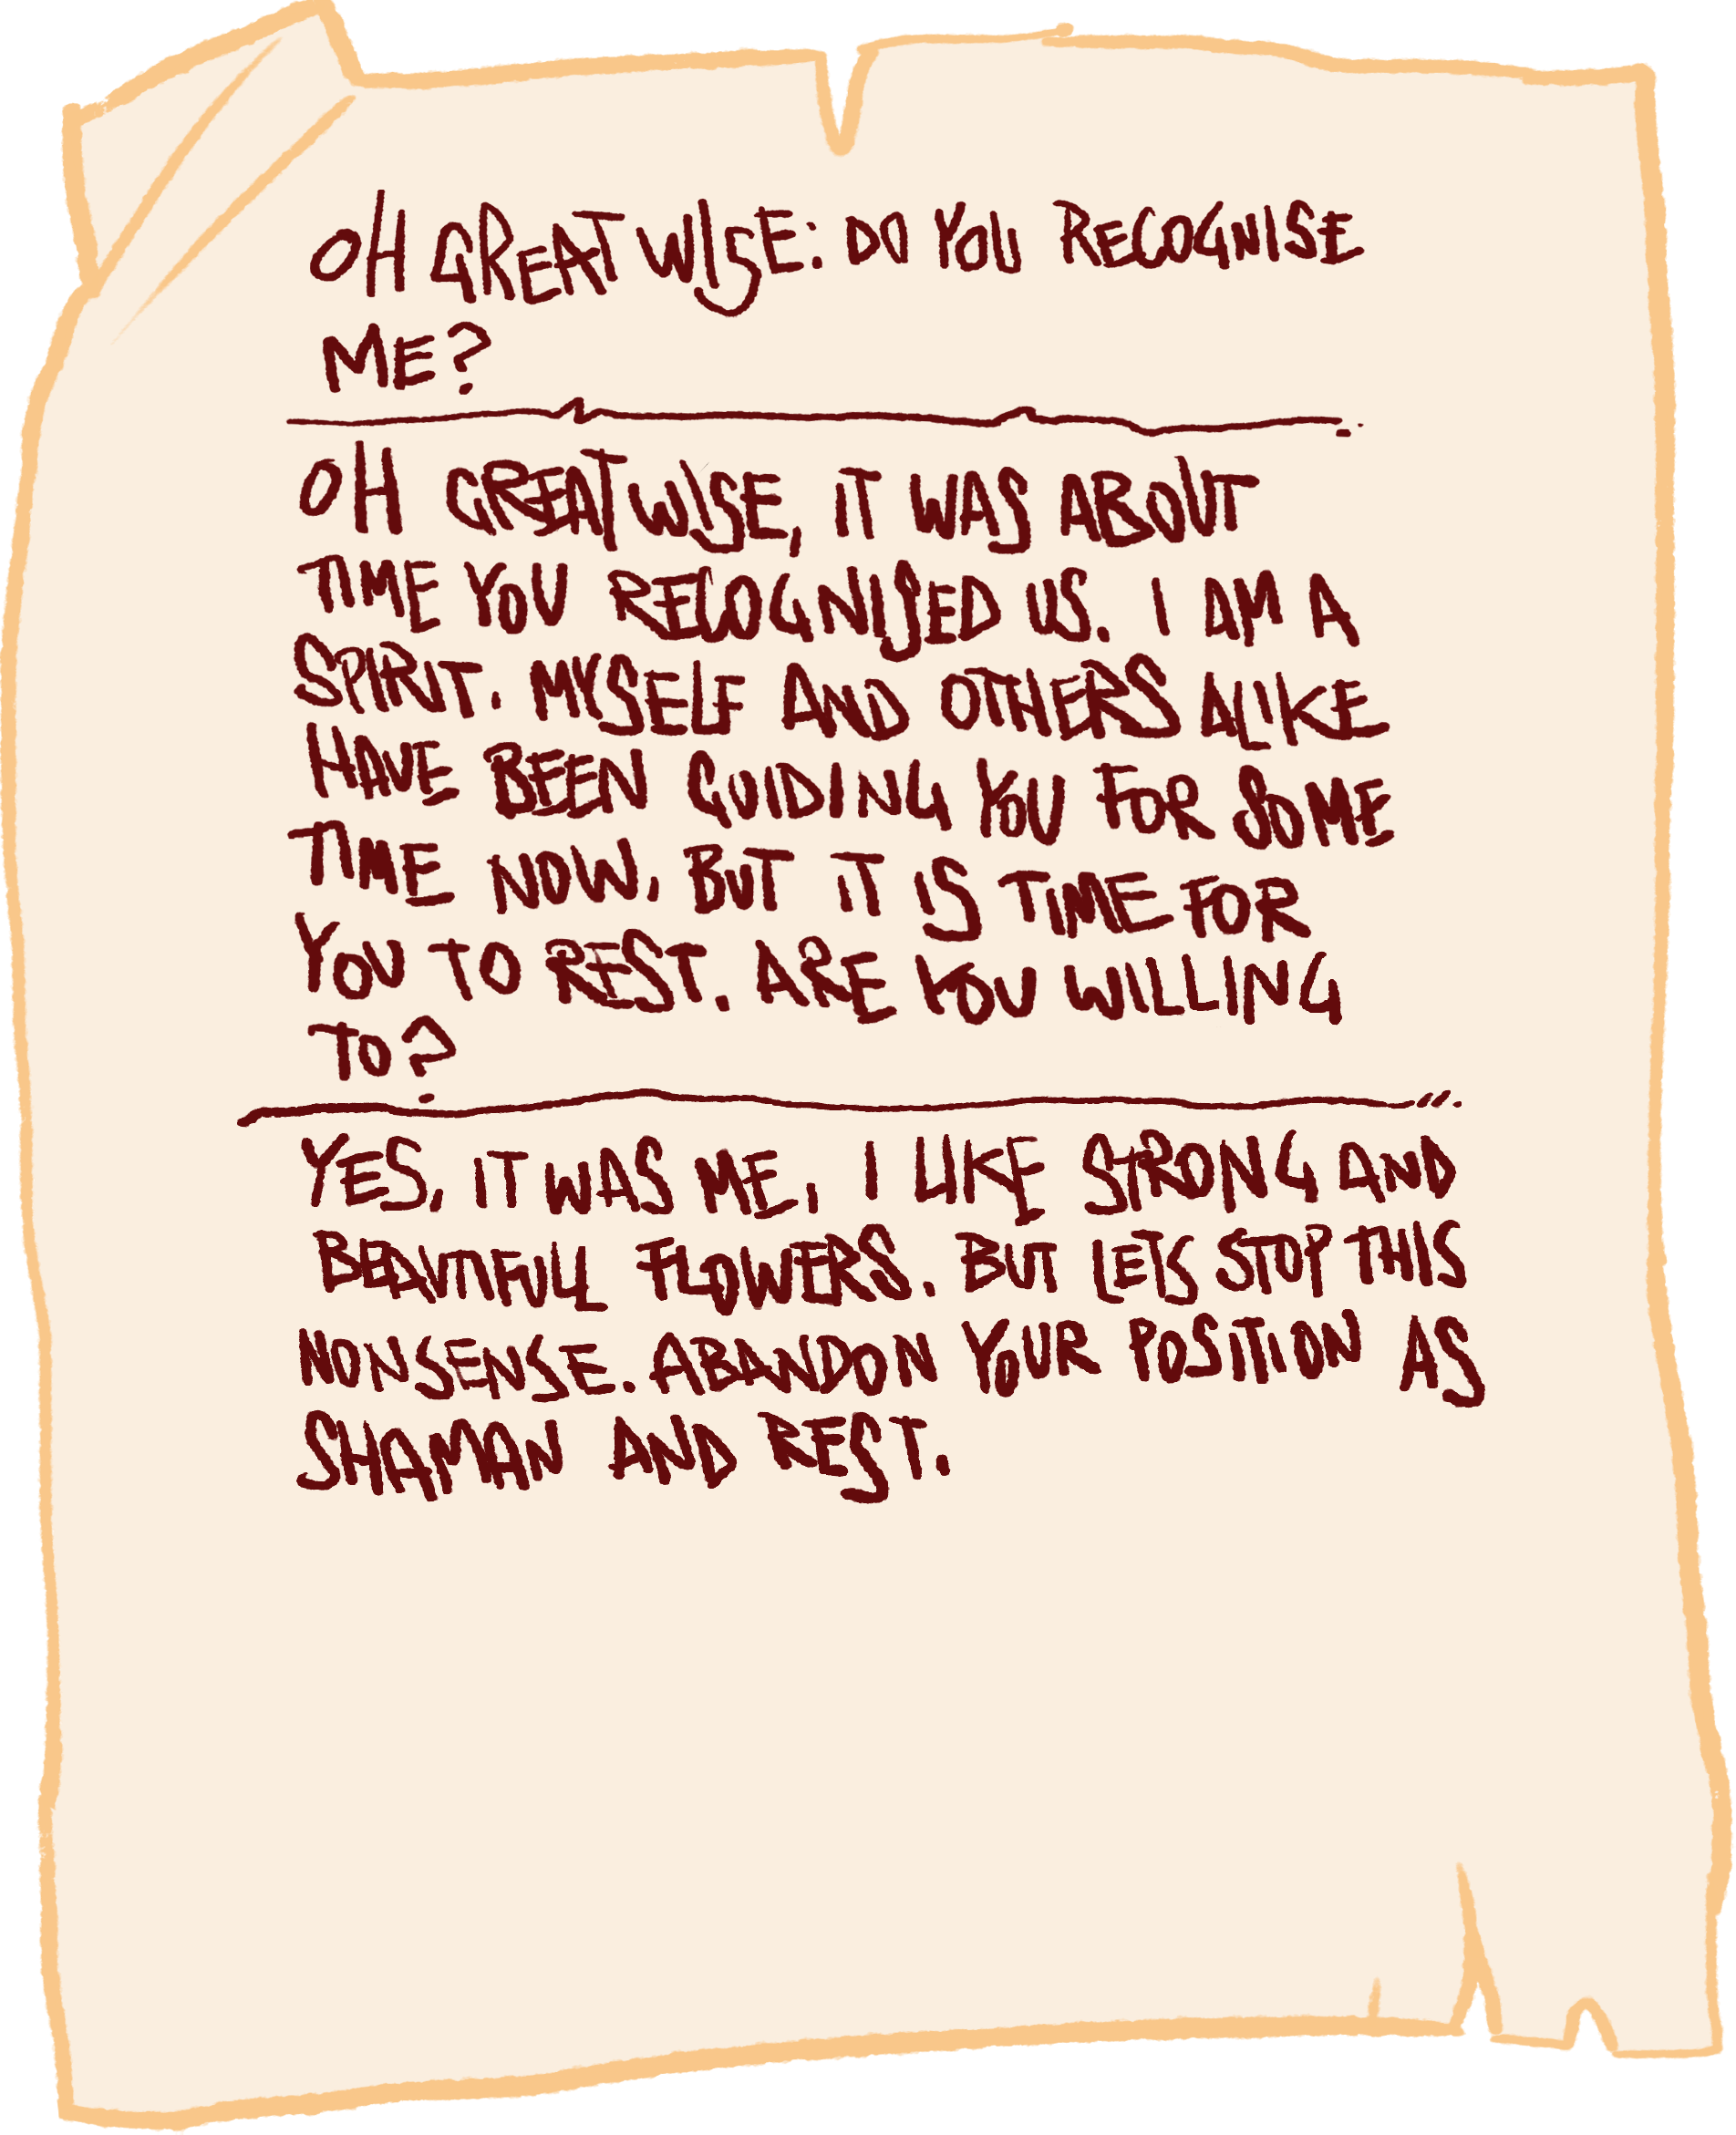 OH GREAT WISE: DO YOU RECOGNISE
ME?
OH GREAT WISE, IT WAS ABOUT
TIME YOU RECOGNISED US. I AM A
SPIRIT. MYSELF AND OTHERS ALIKE
HAVE BEEN GUIDING YOU FOR SOME
TIME NOW, BUT IT IS TIME FOR
YOU TO REST. ARE YOU WILLING
TO?
YES, IT WAS ME, I LIKE STRONG AND
BEAUTIFULL FLOWERS. BUT LETS STOP THIS
NONSENSE. ABANDON YOUR POSITION AS
SHAMAN AND REST.